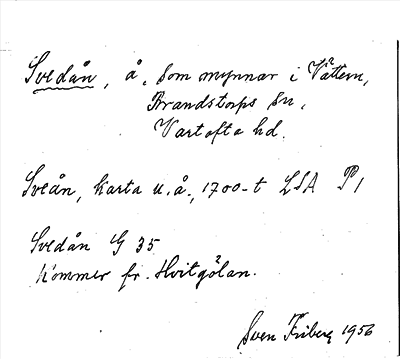 Svedån, å, som mynnar i Vättern,
Brandstorps sn,
Vartofta hd.
Sveån, karta u.å., 1700-t LSA P 1
Svedån G 35
Kommer fr. Hvitgölan.
Sven Friberg 1956